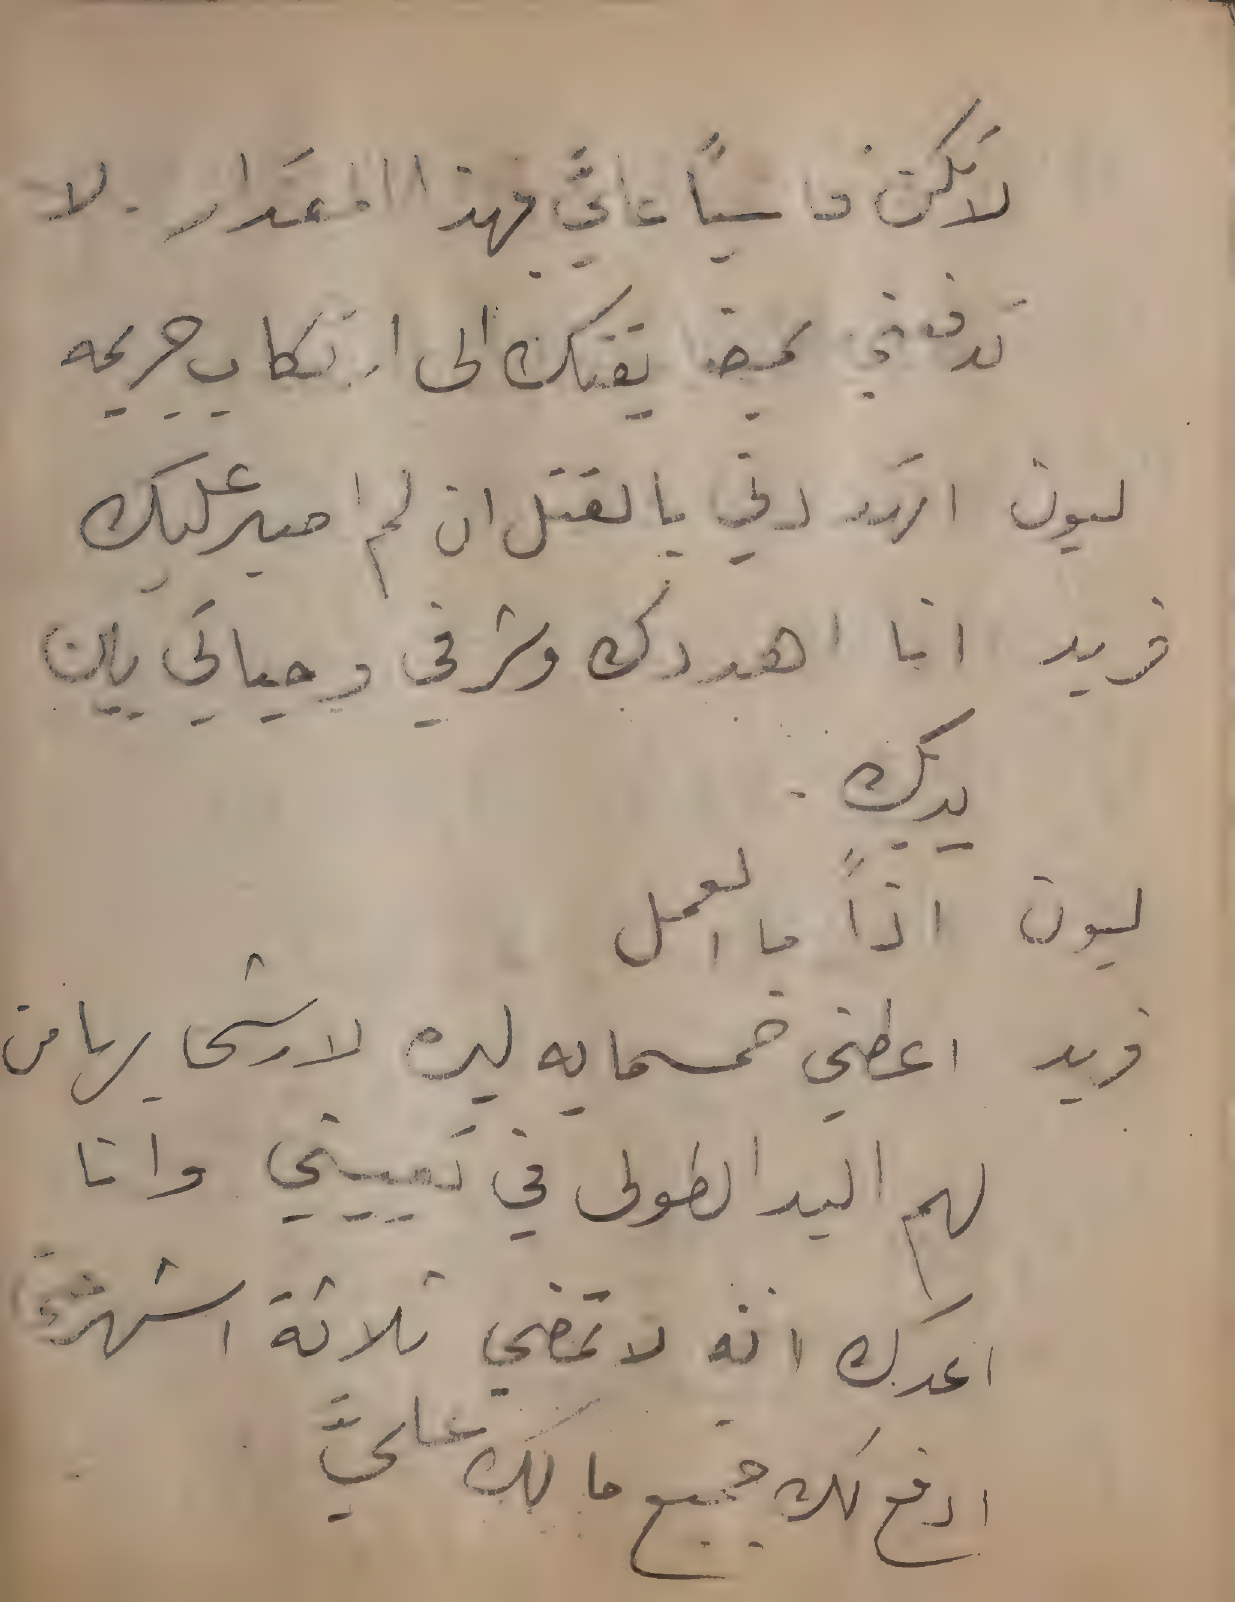 لا تكن قاسياً عليَّ بهذا المقدار. لا
تدفعني بمضايقتك الى ارتكاب جريمه
ليون اتهددني بالقتل ان لم اصبر عليك
فريد انا اهددك وشرفي وحياتي بين
يديك.
ليون اذاً ما العمل
فريد اعطني خمسمايه ليره لارشي بها من
لهم اليد الطولى في تعييني وانا
اعدك انه لا تمضي ثلاثة اشهر
ادفع لك جميع ما لك عليَّ